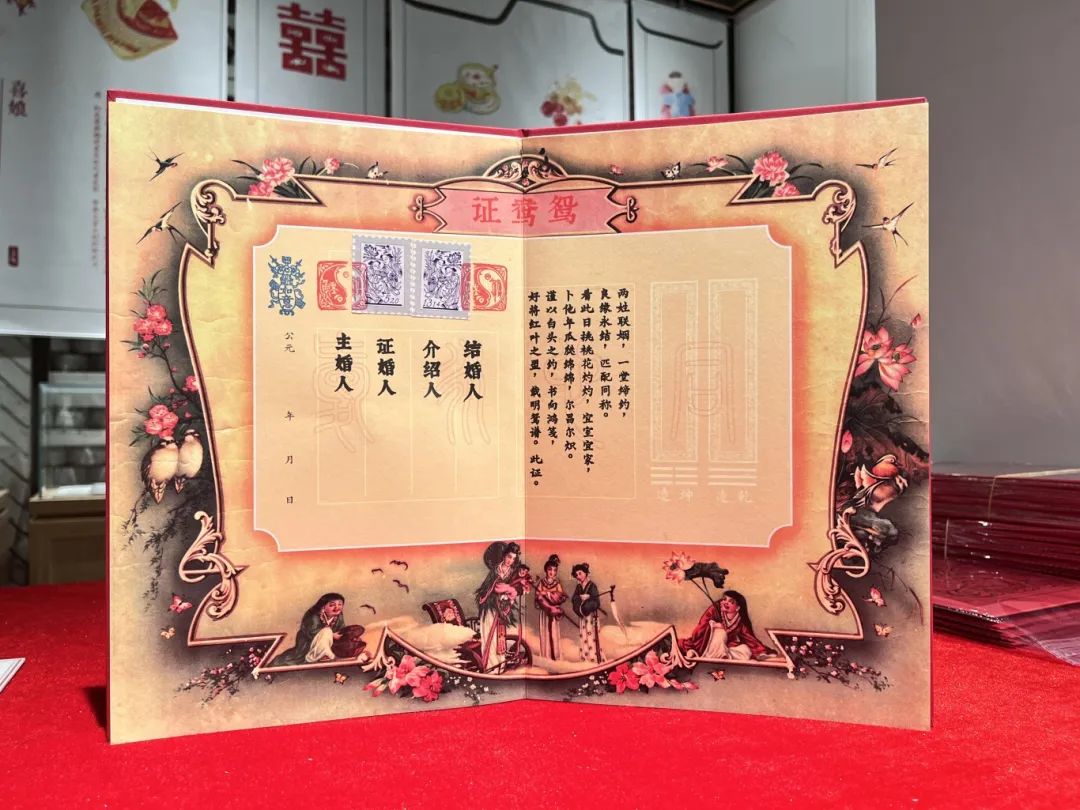 囍
喜娘
鸳鸯证
乾造
坤造
两姓联姻，一堂缔约，
良缘永结，匹配同称。
看此日桃桃花灼灼，宜室宜家，
卜他年瓜瓞绵绵，尔昌尔炽。
谨以白头之约，书向鸿笺，
好将红叶之盟，载明鸳谱。此证。
结婚人
介绍人
证婚人
主婚人
公元 年 月 日